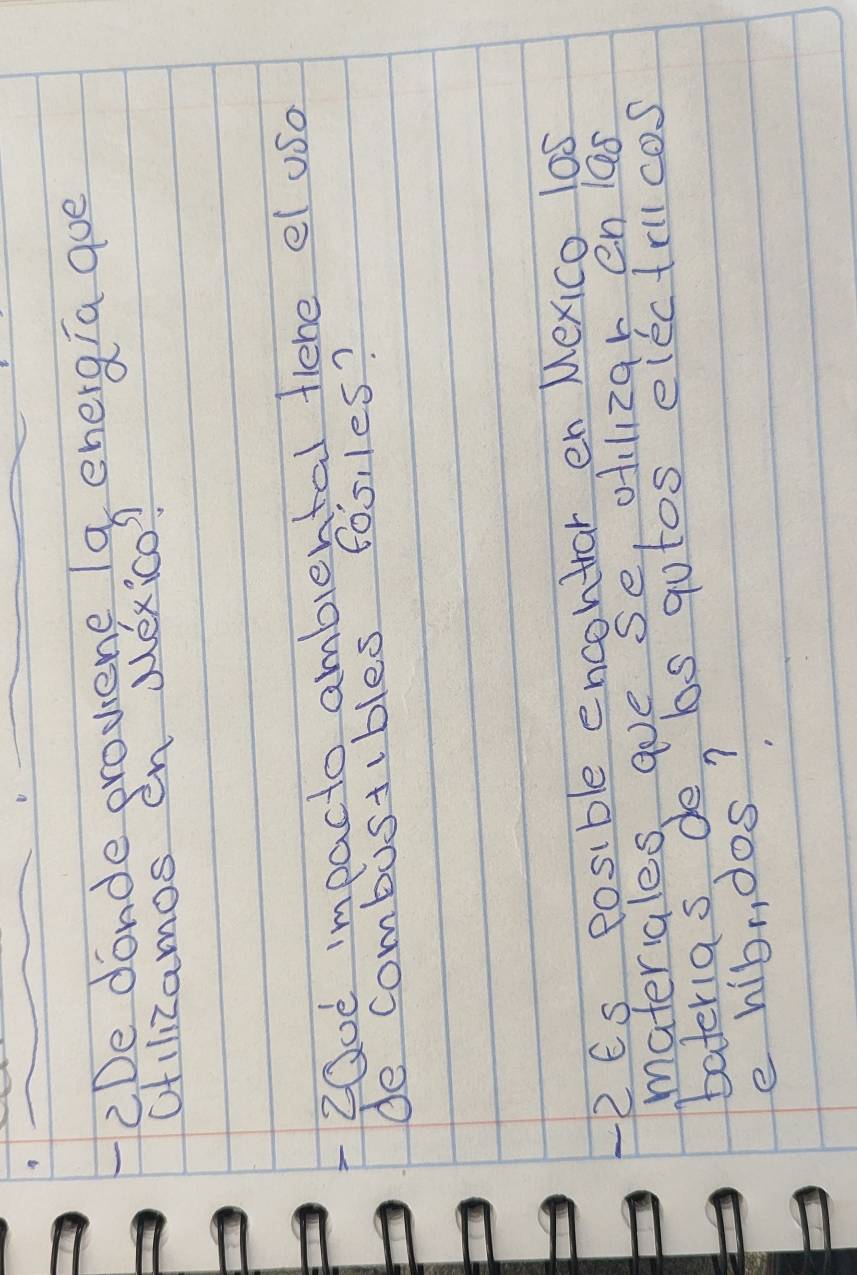 -¿De dónde proviene la energía que
Utilizamos en México?
-¿Qué impacto ambiental tiene el uso
de combustibles fósiles?
-¿Es posible encontrar en Mexico los
materiales que se utilizar en las
baterias de los autos eléctricos
e hibridos?